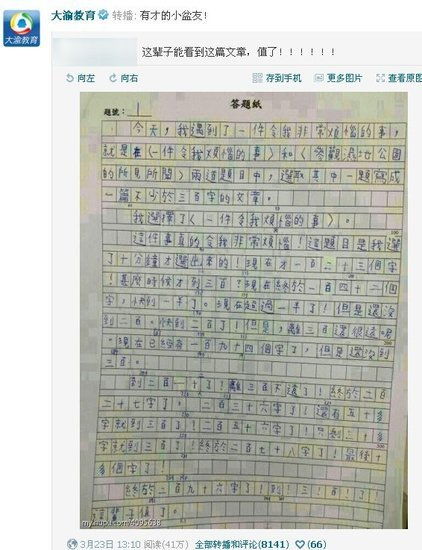 大渝教育 转播: 有才的小盆友!
大渝教育
这辈子能看到这篇文章，值了！！！！！！
向左 向右 存到手机 更多图片 查看原图
答題紙
題號: 1
今天,我遇到了一件令我非常煩惱的事,
就是在〈一件令我煩惱的事〉和〈參觀濕地公園
的所見所聞〉兩道題目中,選取其中一題寫成
一篇不少於三百字的文章。
我選擇了〈一件令我煩惱的事〉。
這件事真的令我非常煩惱!這題目是我選
了十分鐘才選出來的!現在才一百二十三個字
!甚麼時候才到三百?現在終於一百四十二個
字,快一半了。現在超過一半了!但是還沒
到二百。快到二百了!但是,離三百還很遠呢
。現在已經有一百九十四個字了,但是還沒到
三百。
到二百一十了!離三百不遠了!終於二百
二十七字了!二百三十六字了!還有五十多
字就到三百了!二百五十六字了!只剩三十多
字就到三百了!終於二百七十八字了!最後十
多個字了!
終於二百九十六字了!到!三百了!
這輩子值了。
3月23日 13:10 阅读(41万) 全部转播和评论(8141) (66)